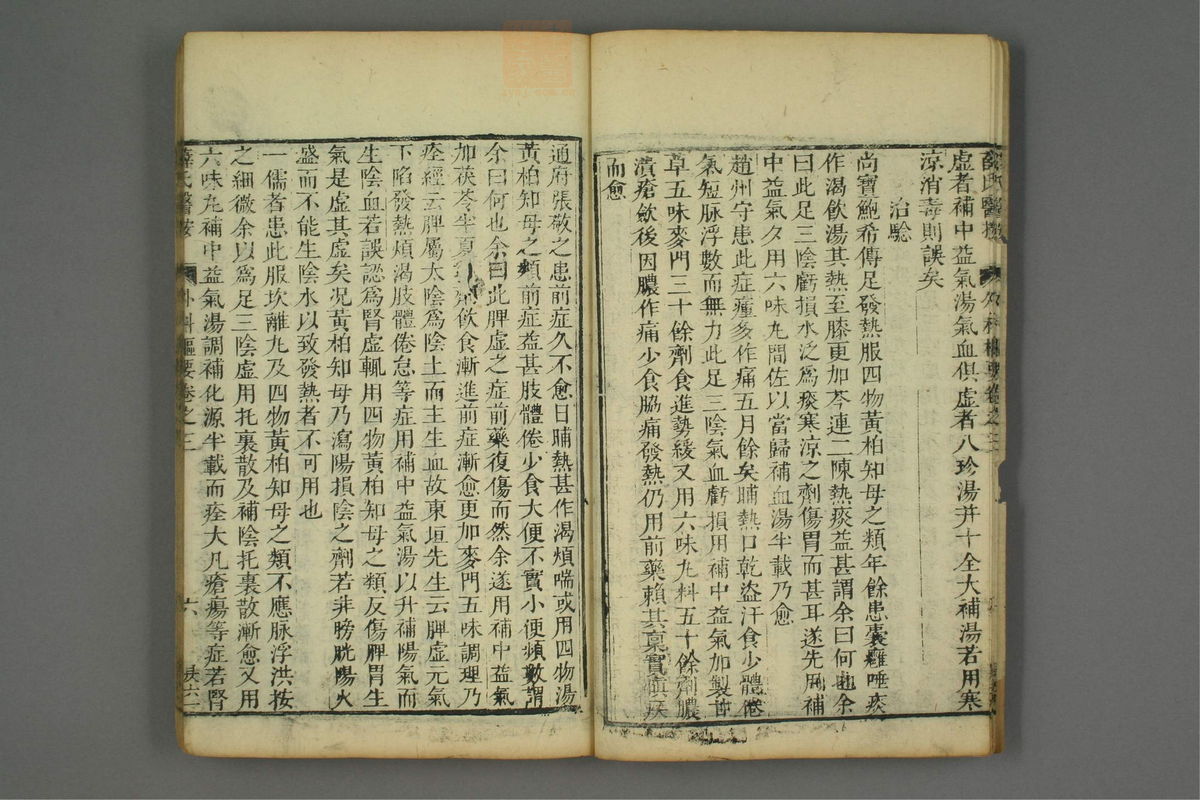 薛氏醫按 外科樞要卷之三
虛者補中益氣湯氣血俱虛者八珍湯并十全大補湯若用寒
涼消毒則誤矣
治驗
尚寶鮑希傳足發熱服四物黃柏知母之類年餘患囊癰唾痰
作渴飲湯其熱至膝更加芩連二陳熱痰益甚謂余曰何也余
曰此足三陰虧損水泛為痰寒涼之劑傷胃而甚耳遂先用補
中益氣夕用六味丸間佐以當歸補血湯半載乃愈
趙州守患此症瘇多作痛五月餘矣晡熱口乾盜汗食少體倦
氣短脉浮數而無力此足三陰氣血虧損用補中益氣加製甘
草五味麥門三十餘劑食進勢緩又用六味丸料五十餘劑膿
潰瘡歛後因膿作痛少食脇痛發熱仍用前藥賴其稟實慎疾
而愈
通府張敬之患前症久不愈日晡熱甚作渴煩喘或用四物湯
黃柏知母之類前症益甚肢體倦少食大便不實小便頻數謂
余曰何也余曰此脾虛之症前藥復傷而然余遂用補中益氣
加茯苓半夏劑飲食漸進前症漸愈更加麥門五味調理乃
痊經云脾屬太陰為陰土而主生血故東垣先生云脾虛元氣
下陷發熱煩渴肢體倦怠等症用補中益氣湯以升補陽氣而
生陰血若誤認為腎虛輒用四物黃柏知母之類反傷脾胃生
氣是虛其虛矣况黃柏知母乃瀉陽損陰之劑若非膀胱陽火
盛而不能生陰水以致發熱者不可用也
一儒者患此服坎離丸及四物黃柏知母之類不應脉浮洪按
之細微余以為足三陰虛用托裏散及補陰托裏散漸愈又用
六味丸補中益氣湯調補化源半載而痊大凡瘡瘍等症若腎
薛氏醫按 外科樞要卷之三 六